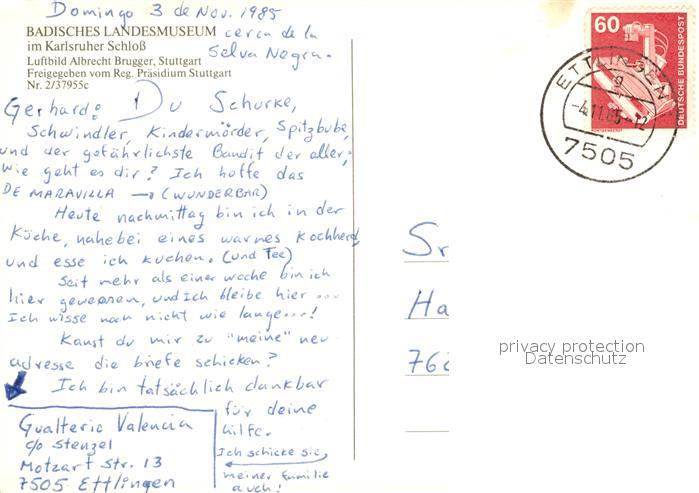 Domingo 3 de Nov. 1985
cerca de la
Selva Negra.
BADISCHES LANDESMUSEUM
im Karlsruher Schloß
Luftbild Albrecht Brugger, Stuttgart
Freigegeben vom Reg. Präsidium Stuttgart
Nr. 2/37955c
Gerhard: Du Schurke,
Schwindler, Kindermörder, Spitzbube,
und der gefährlichste Bandit der aller;
wie geht es dir? Ich hoffe das
DE MARAVILLA → (WUNDERBAR)
Heute nachmittag bin ich in der
Küche, nahebei eines warnes Kochherd,
und esse ich kuchen. (und Tee)
Seit mehr als einer woche bin ich
hier gewesen, und Ich bleibe hier...
Ich wisse noch nicht wie lange...!
Kanst du mir zu "meine" neu
adresse die briefe schicken?
Ich bin tatsächlich dankbar
für deine
hilfe.
Ich schicke sie,
meiner Familie
auch!
Gualterio Valencia
c/o Stenzel
Motzart Str. 13
7505 Ettlingen
60
DEUTSCHE BUNDESPOST
RÖNTGENGERÄT
ETTLINGEN
g
-4.11.85-12
7505
Sr
Ha
76
privacy protection
Datenschutz